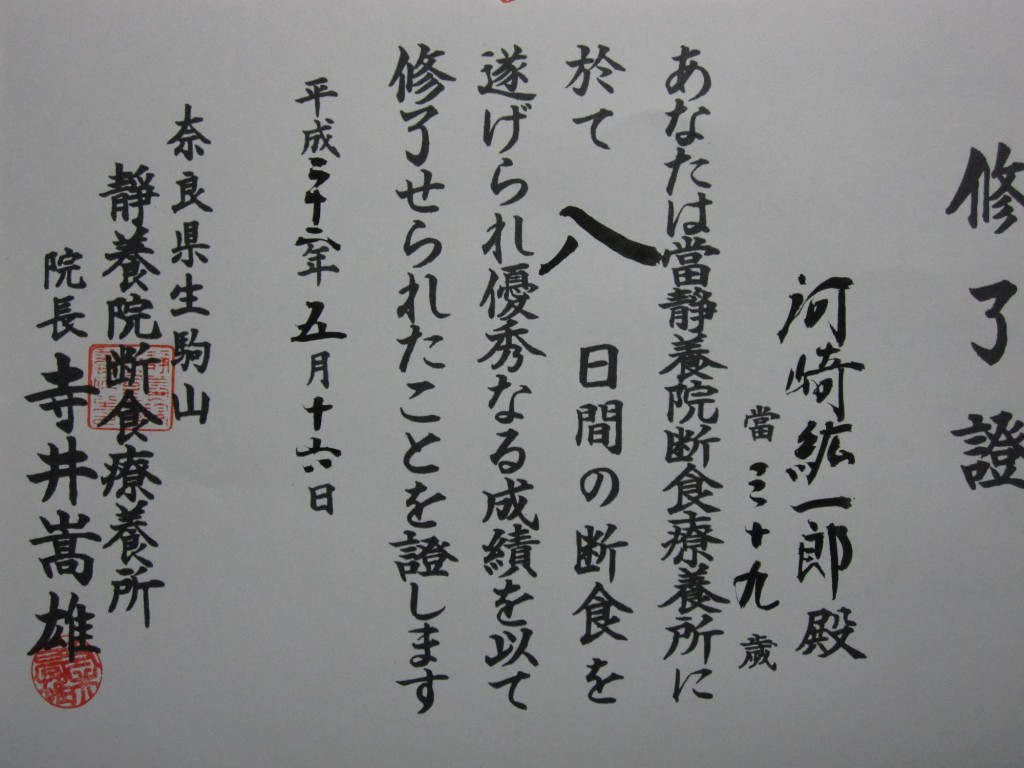 修了證
河崎紘一郎殿
當三十九歳
あなたは當靜養院断食療養所に
於て八日間の断食を
遂げられ優秀なる成績を以て
修了せられたことを證します
平成二十六年五月十六日
奈良県生駒山
靜養院断食療養所
院長寺井嵩雄